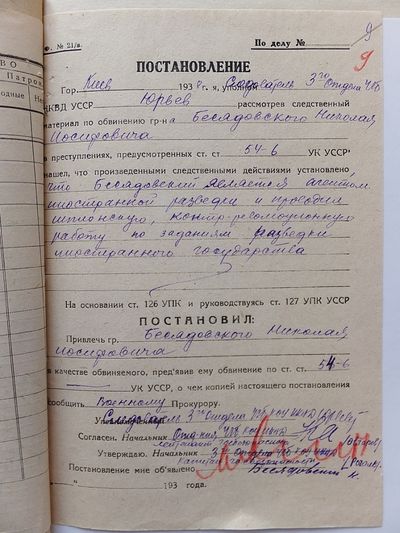 9
9
Ф. № 21/а.
По делу №
ПОСТАНОВЛЕНИЕ
Гор. Киев 1938 г. я, уполном. Следователь 3го Отдела УГБ
НКВД УССР Юрьев рассмотрев следственный
материал по обвинению гр-на Беседовского Николая
Иосифовича
в преступлениях, предусмотренных ст. ст. 54-6 УК УССР
нашел, что произведенными следственными действиями установлено,
что Беседовский является агентом
иностранной разведки и проводил
шпионскую, контр-революционную
работу по заданиям разведки
иностранного государства
На основании ст. 126 УПК и руководствуясь ст. 127 УПК УССР
ПОСТАНОВИЛ:
Привлечь гр. Беседовского Николая
Иосифовича
в качестве обвиняемого, пред'явив ему обвинение по ст. ст. 54-6
УК УССР, о чем копией настоящего постановления
сообщить Военному Прокурору.
Следователь 3го Отдела УГБ НКВД
Согласен. Начальник Отд-ния, УГБ НКВД
лейтенант
Утверждаю. Начальник 3 Отдела УГБ НКВД
капитан
Постановление мне об'явлено Беседовский Н.
193 года.
ВО
Патрон
одные
Не